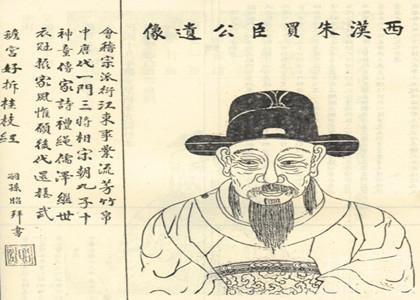 西漢朱買臣公遺像
會稽宗派衍江東事業流芳竹帛
中唐代一門三將相宋朝九子十
神童傳家詩禮繩儒澤繼世
衣冠振家風惟願後代還接武
蟾宮好折桂枝紅
孫拜書